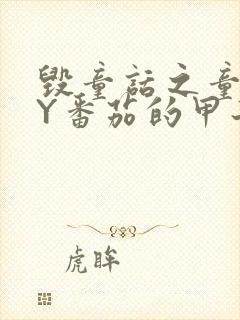 毁童话之童
Y番茄的甲
虎眸